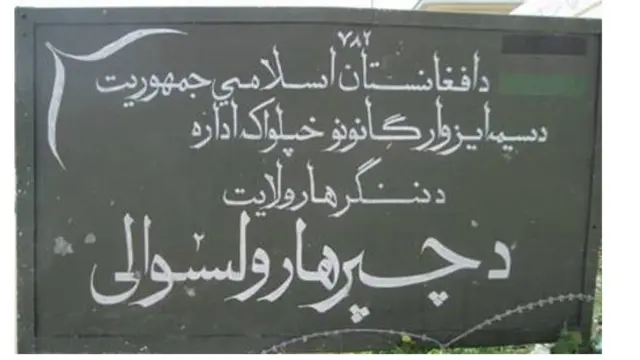 ۷۸۲
د افغانستان اسلامي جمهوریت
د سیمه ایزو ارګانونو خپلواکه اداره
د ننګرهار ولایت
د چپرهار ولسوالی